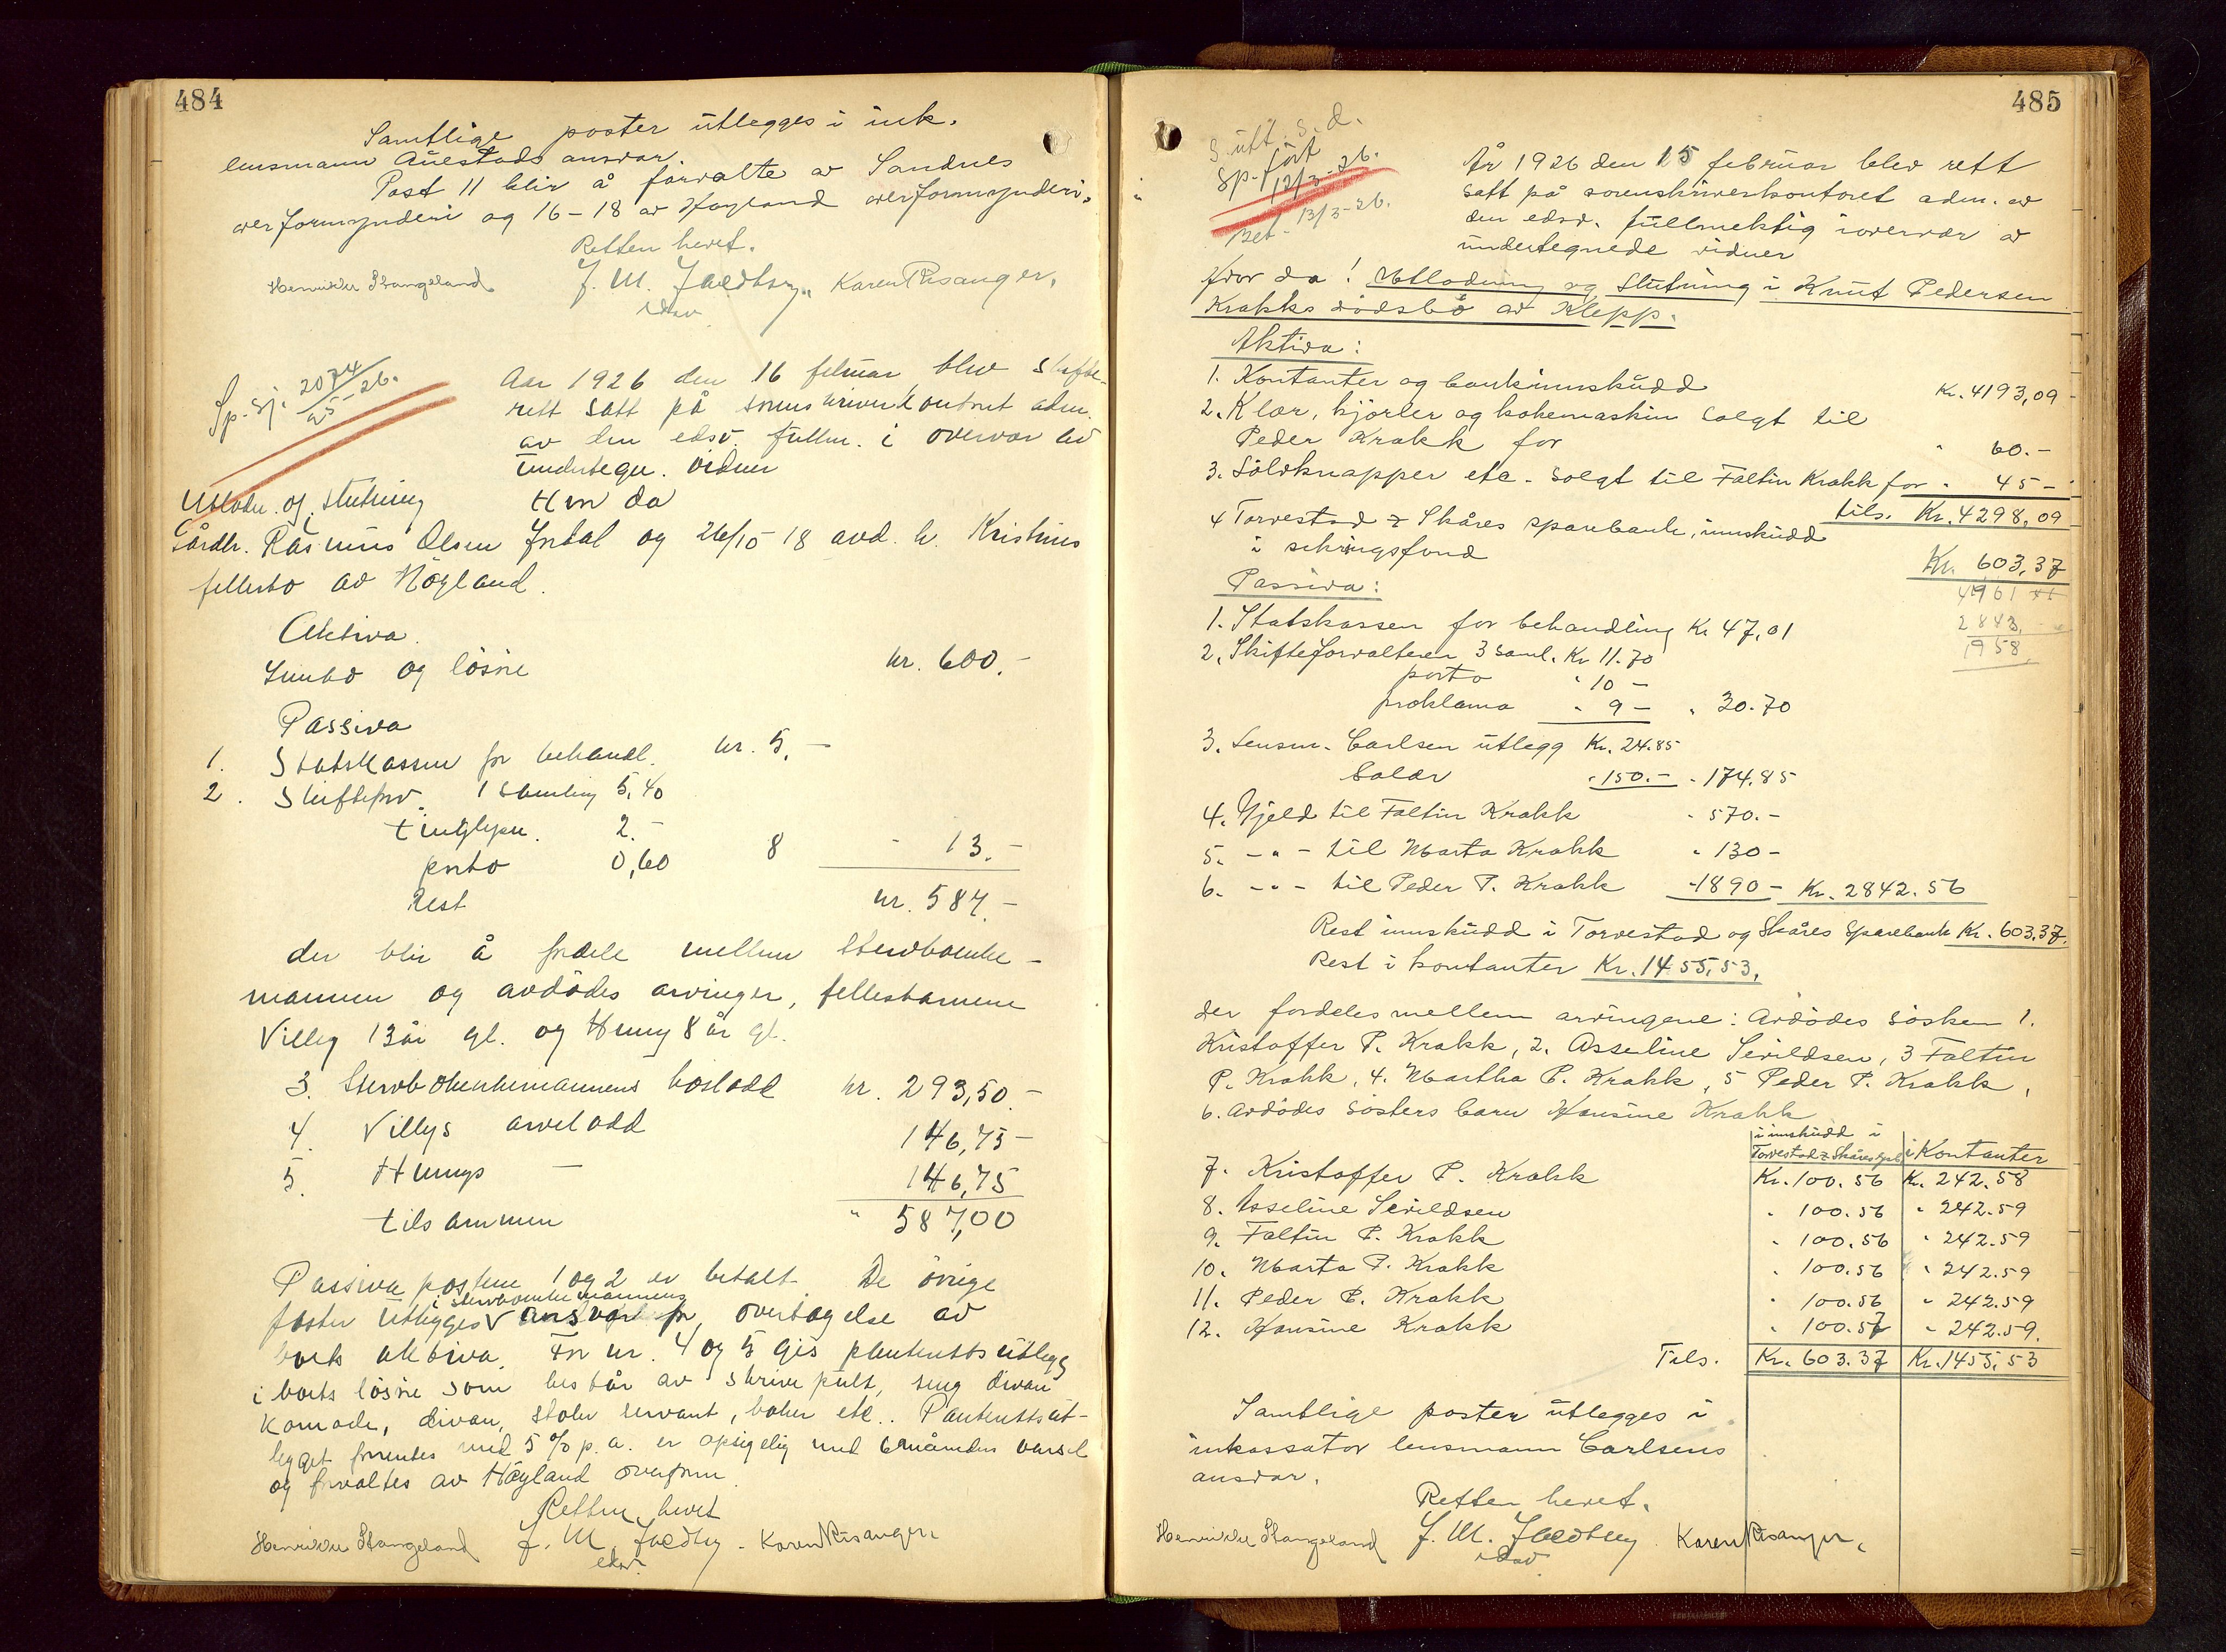 484
Samtlige poster utlegges i ink.
lensmann Auestads ansvar.
Post 11 blir å forvalte av Sandnes
overformynderi og 16-18 av Høyland overformynderi.
Retten hevet.
Henrikke Stangeland J. M. Jaedtny. Karen Risanger.
edsv
Sp. sj. 2074/25-26.
Aar 1926 den 16 februar blev skifte-
rett satt på sorenskriverkontoret adm.
av den edsv. fullm. i overvær av
undertegn. vidner
Utlodn. og slutning Hvor da
Gårdbr. Rasmus Olsen Indal og 26/10 18 avd. h. Kristines
fellesbo av Høyland.
Aktiva.
Innbo og løsøre kr. 600.-
Passiva
1. Statskassen for behandl. kr. 5.-
2. Skifteforv. 1 samling 5,40
tinglysn. 2.-
porto 0,60 8 - 13.-
Rest kr. 587.-
der blir å fordele mellem sterbboenke-
mannen og avdødes arvinger, fellesbarnene
Villy 13 år gl. og Henny 8 år gl.
3. Sterbboenkemannens boslodd kr. 293,50.-
4. Villys arvelodd 146,75-
5. Hennys — 146,75
tilsammen " 587,00
Passiva postene 1 og 2 er betalt. De øvrige
i sterbboenkemannens
poster utlegges ansvar for overtagelse av
boets aktiva. For nr. 4 og 5 gis panterettsutlegg
i boets løsøre som består av skrivepult, seng divan
komode, divan, stoler servant, bøker etc.. Panterettsut-
legget forrentes med 5 % p.a. er opsigelig med 6 måneders varsel
og forvaltes av Høyland overform.
Retten hevet
Henrikke Stangeland J. M. Jaedtny. Karen Risanger.
edsv.
485
S. utt. s.d.
Sp. ført
12/3-26.
Bet. 13/3-26.
År 1926 den 15 februar blev rett
satt på sorenskriverkontoret adm. av
den edsv. fullmektig i overvær av
undertegnede vidner
Hvor da! Utlodning og slutning i Knut Pedersen
Krakks dødsbo av Klepp.
Aktiva:
1. Kontanter og bankinnskudd Kr. 4193,09
2. Klær, hjorler og kokemaskin solgt til
Peder Krakk for " 60.-
3. Sølvknapper etc. solgt til Faltin Krakk for " 45-
tils. Kr. 4298,09
4 Torvestad & Skåres sparebank, innskudd
i sikringsfond Kr. 603,37
4961
2843,
1958
Passiva:
1. Statskassen for behandling Kr 47,01
2. Skifteforvalteren 3 saml. Kr 11.70
porto " 10-
proklama " 9- " 30.70
3. Lensm. Carlsen utlegg Kr. 24.85
Salær " 150.- " 174,85
4. Gjeld til Faltin Krakk " 570.-
5. - " - til Marta Krakk " 130-
6. - " - til Peder P. Krakk -1890- Kr. 2842.56
Rest innskudd i Torvestad og Skåres Sparebank Kr. 603,37.
Rest i kontanter Kr. 1455,53.
der fordeles mellem arvingene: Avdødes søsken 1.
Kristoffer P. Krakk, 2. Asseline Sivildsen, 3 Faltin
P. Krakk, 4. Martha P. Krakk, 5 Peder P. Krakk,
6. avdødes søsters barn Hansine Krakk
i innskudd i
Torvestad & Skåres Spb. i Kontanter
7. Kristoffer P. Krakk Kr. 100.56 Kr. 242.58
8. Asseline Sivildsen " 100.56 " 242.59
9. Faltin P. Krakk " 100.56 " 242.59
10. Marta P. Krakk " 100.56 " 242.59
11. Peder P. Krakk " 100.56 " 242.59
12. Hansine Krakk " 100.57 " 242.59.
Tils. Kr. 603.37 Kr. 1455,53
Samtlige poster utlegges i
inkassator lensmann Carlsens
ansvar.
Retten hevet.
Henrikke Stangeland J. M. Jaedtny Karen Risanger.
edsv